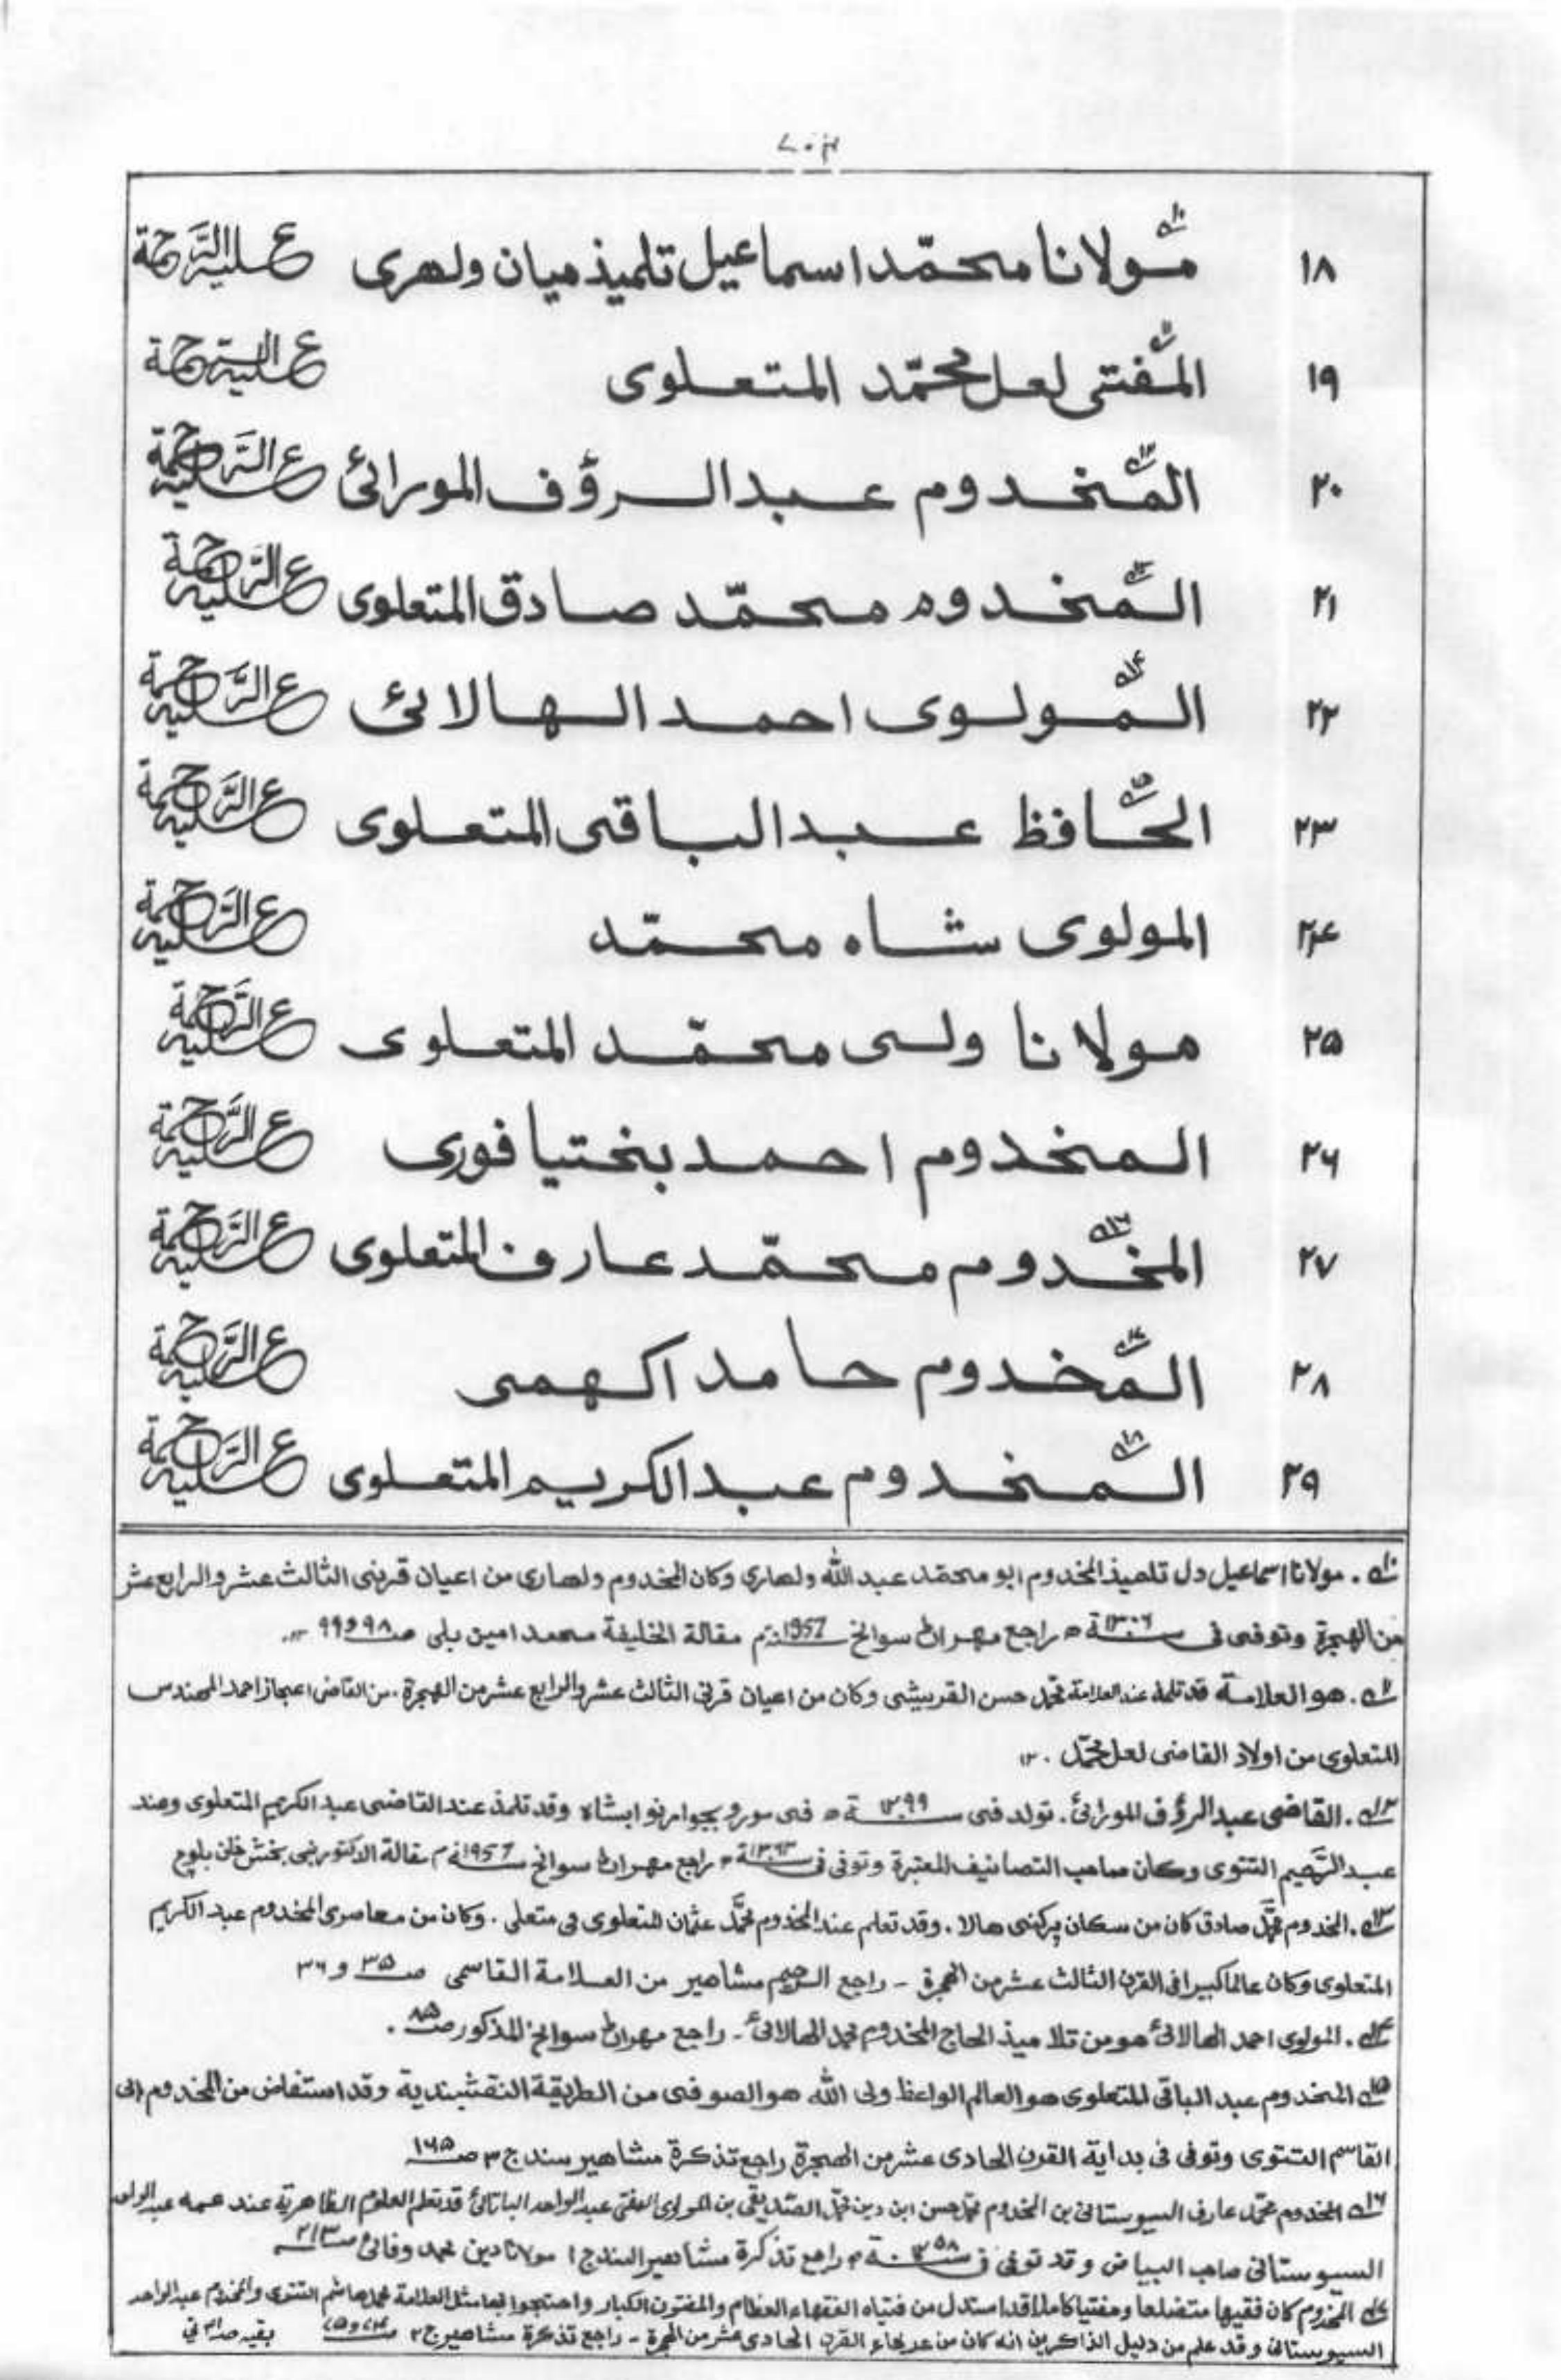 ١٨ مولانا محمّد اسماعيل تلميذ ميان ولهرى عليه الرَّحمة
١٩ المفتى لعل محمّد المتعلوى عليه الرَّحمة
٢٠ المخدوم عبد الرؤف المورائى عليه الرَّحمة
٢١ المخدوم محمّد صادق المتعلوى عليه الرَّحمة
٢٢ المولوى احمد الهالائى عليه الرَّحمة
٢٣ الحافظ عبد الباقى المتعلوى عليه الرَّحمة
٢۴ المولوى شاه محمّد عليه الرَّحمة
٢۵ مولانا ولى محمّد المتعلوى عليه الرَّحمة
٢۶ المخدوم احمد بختيافورى عليه الرَّحمة
٢٧ المخدوم محمّد عارف المتعلوى عليه الرَّحمة
٢٨ المخدوم حامد اكهمى عليه الرَّحمة
٢٩ المخدوم عبد الكريم المتعلوى عليه الرَّحمة
١٠ . مولانا اسماعيل دل تلميذ المخدوم ابو محمّد عبد الله ولهارى وكان المخدوم ولهارى من اعيان قرنى الثالث عشر والرابع عشر
من الهجرة وتوفى فى سنة ١٣٠٦ ه راجع مهران سوانح 1957م مقالة الخليفة محمد امين بلى ص ٩٨ و ٩٩ ١٢.
١١ . هو العلامة قد تلمذ عند العلامة محمّد حسن القريشى وكان من اعيان قرنى الثالث عشر والرابع عشر من الهجرة . من القاضى اعجاز احمد المهندس
المتعلوى من اولاد القاضى لعل محمّد . ١٢
١٢ . القاضى عبد الرؤف المورائى . تولد فى سنة ه فى مورو بجوار نوابشاه وقد تلمذ عند القاضى عبد الكريم المتعلوى وعند
عبد الرَّحيم التتوى وكان صاحب التصانيف المعتبرة وتوفى فى سنة ه راجع مهران سوانح 1957م مقالة الدكتور نبى بخش خان بلوچ
١٣ . المخدوم محمّد صادق كان من سكان پرگنى هالا . وقد تعلم عند المخدوم محمّد عثمان المتعلوى فى متعلى . وكان من معاصرى المخدوم عبد الكريم
المتعلوى وكان عالما كبيرا فى القرن الثالث عشر من الهجرة - راجع الرحيم مشاهير من العلامة القاسمى ص ٣۵ و ٣٦
١۴ . المولوى احمد الهالائى هو من تلاميذ الحاج المخدوم محمد الهالائى - راجع مهران سوانح المذكور ص ٨۵ .
١۵ المخدوم عبد الباقى المتعلوى هو العالم الواعظ ولى الله هو الصوفى من الطريقة النقشبندية وقد استفاض من المخدوم ابى
القاسم التتوى وتوفى فى بداية القرن الحادى عشر من الهجرة راجع تذكرة مشاهير سندج ٣ ص ١٦۵
١٦ المخدوم محمّد عارف السيوستانى بن المخدوم محمّد حسن ابن دين محمّد الصّديقى بن المولوى المفتى عبد الواحد الباتائى قد تعلم العلوم الظاهرية عند عمه عبد الواحد
السيوستانى صاحب البياض وقد توفى فى سنة ه راجع تذكرة مشاهير السندج ١ مولانا دين محمد وفائى ص ٢١٣
١٧ المخدوم كان فقيها متضلعا ومفتيا كاملا قد استدل من فتياه الفقهاء العظام والمفتون الكبار واحتجوا بها مثل العلامة محمد هاشم التتوى والمخدوم عبد الواحد
السيوستانى وقد علم من دليل الذاكرين انه كان من عرفاء القرن الحادى عشر من الهجرة - راجع تذكرة مشاهير ج ٢